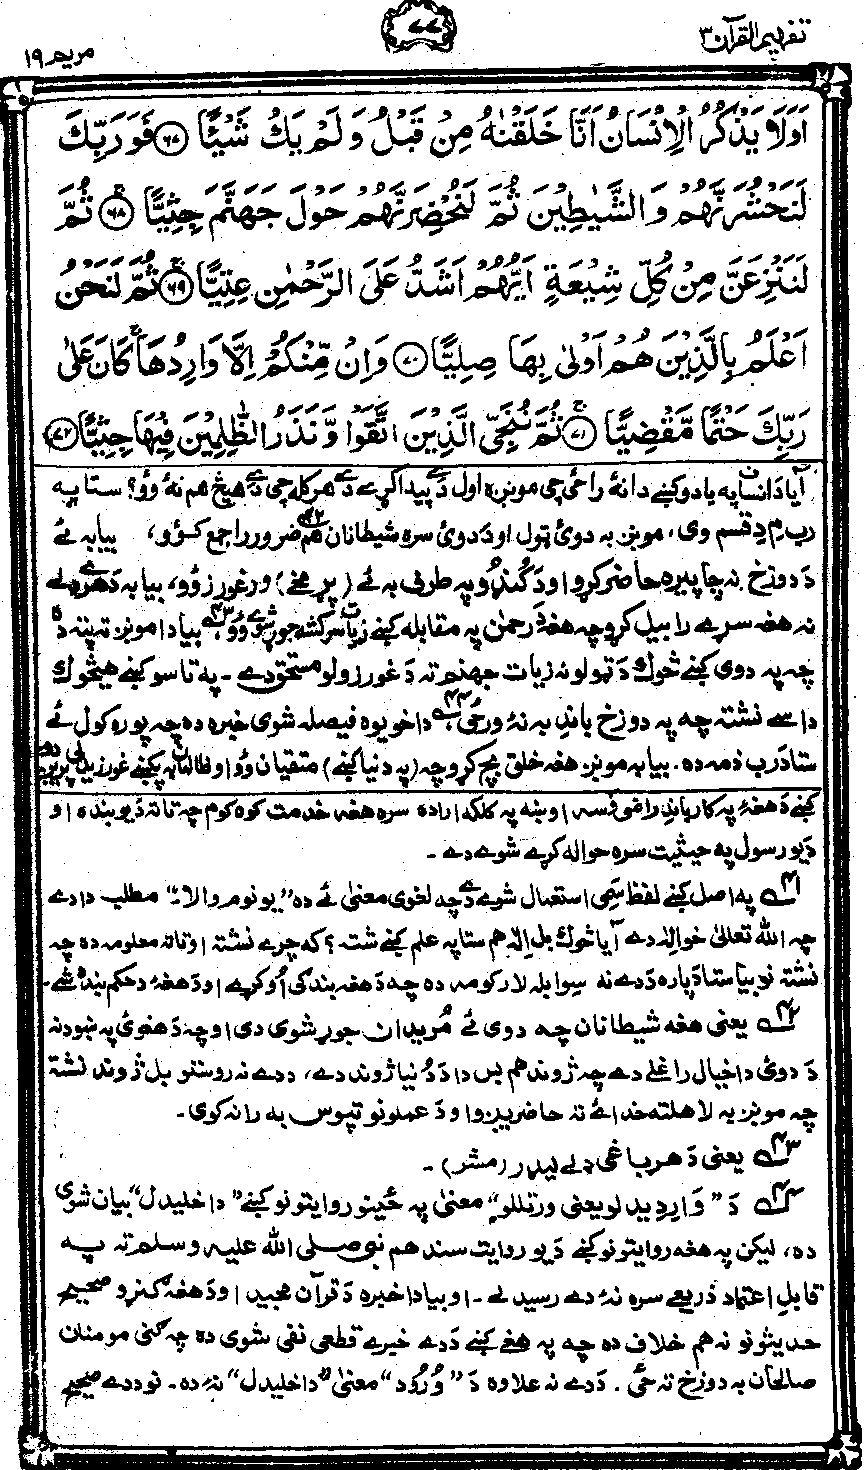 تفهيم القرآن ۳
۷۷
مريم ۱۹
اَوَلَا يَذْكُرُ الْاِنْسَانُ اَنَّا خَلَقْنٰهُ مِنْ قَبْلُ وَلَمْ يَكُ شَيْـًٔا ﴿۶۷﴾ فَوَرَبِّكَ
لَنَحْشُرَنَّهُمْ وَالشَّيٰطِيْنَ ثُمَّ لَنُحْضِرَنَّهُمْ حَوْلَ جَهَنَّمَ جِثِيًّا ﴿۶۸﴾ ثُمَّ
لَنَنْزِعَنَّ مِنْ كُلِّ شِيْعَةٍ اَيُّهُمْ اَشَدُّ عَلَى الرَّحْمٰنِ عِتِيًّا ﴿۶۹﴾ ثُمَّ لَنَحْنُ
اَعْلَمُ بِالَّذِيْنَ هُمْ اَوْلٰى بِهَا صِلِيًّا ﴿۷۰﴾ وَاِنْ مِّنْكُمْ اِلَّا وَارِدُهَا كَانَ عَلٰى
رَبِّكَ حَتْمًا مَّقْضِيًّا ﴿۷۱﴾ ثُمَّ نُنَجِّى الَّذِيْنَ اتَّقَوْا وَّنَذَرُ الظّٰلِمِيْنَ فِيْهَا جِثِيًّا ﴿۷۲﴾
آيا د انسان په ياد وکښے دا نهٔ راځي چي مونږه اول دے پيدا کړے دے هر کله چي دے هيڅ هم نهٔ وو؟ ستا په
رب م دِ قسم وي، مونږ به دوئ ټول او د دوئ سره شيطانان هم ۴۲ ضرور راجمع کوو، بيا به ئے
د دوزخ نه چاپيره حاضر کړو او د ګنډو په طرف به ئے (پړمخے) ورغورزوو، بيا به د هرے ډلے
نه هغه سړے رابيل کړو چه هغه د رحمٰن په مقابله کښے زيات سرکشه جوړ شوے وو ۴۳، بيا دا مونږ ته پته ده
چه په دوي کښے څوك د ټولو نه زيات جهنم ته د غورزولو مستحق دے۔ په تاسو کښے هيڅوك
داسے نشته چه په دوزخ باندِ به نهٔ ورځي ۴۴، دا خو يوه فيصله شوي خبره ده چه پوره کول ئے
ستا د رب ذمه ده۔ بيا به مونږ هغه خلق بچ کړو چه (په دنيا کښے) متقيان وو او ظالمان به پکښے غورزيدلي پريږدو
کښے د هغهٔ په کار باندِ راضي اوسه او ښه په کلکه اراده سره هغه خدمت کوه کوم چه تا ته د يو بنده او
د يو رسول په حيثيت سره حواله کړے شوے دے۔
۴۱ په اصل کښے لفظ سَمِي استعمال شوے دے چه لغوي معنىٰ ئے ده "يو نوم والا" مطلب دا دے
چه الله تعالىٰ خو الٰه دے آيا څوك بل الٰه هم ستا په علم کښے شته؟ که چرے نشته او تا ته معلومه ده چه
نشته نو بيا ستا دپاره د دے نه سوا بله لار کومه ده چه د هغه بندګي اُوکړے او د هغهٔ د حکم بنده شے۔
۴۲ يعني هغه شيطانان چه دوي ئے مُريدان جوړ شوي دي او چه د هغوئ په ښودنه
د دوئ دا خيال راغلے دے چه ژوند هم بس دا د دُنيا ژوند دے، د دے نه روستو بل ژوند نشته
چه مونږ به لا هلته خدائے ته حاضريږو او د عملونو تپوس به رانه کوي۔
۴۳ يعني د هر باغي ډلے ليډر (مشر)۔
۴۴ د "وَارِد"يدلو يعني ورتللو" معنىٰ په ځينو روايتونو کښے "داخليدل" بيان شوي
ده، ليکن په هغه روايتونو کښے د يو روايت سند هم نبي صلى الله عليه وسلم ته په
قابل اعتماد ذريعے سره نهٔ دے رسيدلے۔ او بيا دا خبره د قرآن مجيد او د هغه ګنړو صحيح
حديثونو نه هم خلاف ده چه په هغے کښے د دے خبرے قطعي نفي شوي ده چه ګني مومنان
صالحان به دوزخ ته ځي۔ د دے نه علاوه د "وُرُود" معنىٰ "داخليدل" نهٔ ده۔ نو د دے صحيح